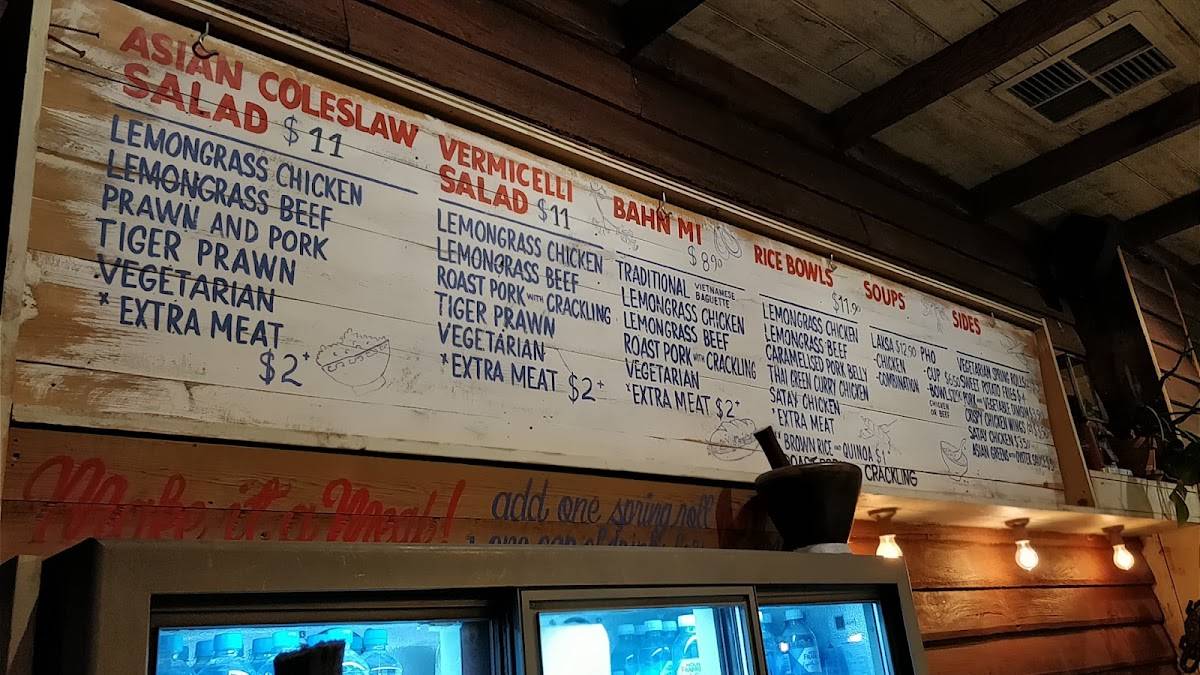 ASIAN COLESLAW
SALAD $11
LEMONGRASS CHICKEN
LEMONGRASS BEEF
PRAWN AND PORK
TIGER PRAWN
VEGETARIAN
* EXTRA MEAT
$2+
VERMICELLI
SALAD $11
LEMONGRASS CHICKEN
LEMONGRASS BEEF
ROAST PORK WITH CRACKLING
TIGER PRAWN
VEGETARIAN
*EXTRA MEAT $2+
BAHN MI
$8.90
TRADITIONAL VIETNAMESE BAGUETTE
LEMONGRASS CHICKEN
LEMONGRASS BEEF
ROAST PORK WITH CRACKLING
VEGETARIAN
*EXTRA MEAT $2+
RICE BOWLS
$11.90
LEMONGRASS CHICKEN
LEMONGRASS BEEF
CARAMELISED PORK BELLY
THAI GREEN CURRY CHICKEN
SATAY CHICKEN
*EXTRA MEAT
* BROWN RICE AND QUINOA $1
CRACKLING
SOUPS
LAKSA $12.90
-CHICKEN
-COMBINATION
PHO
-CUP $6.50
-BOWL
CHICKEN
OR BEEF
SIDES
VEGETARIAN SPRING ROLLS
SWEET POTATO FRIES $4
PORK AND VEGETABLE DIMSIM
CRISPY CHICKEN WINGS
SATAY CHICKEN
ASIAN GREENS WITH OYSTER SAUCE
Make it a Meal!
add one spring roll